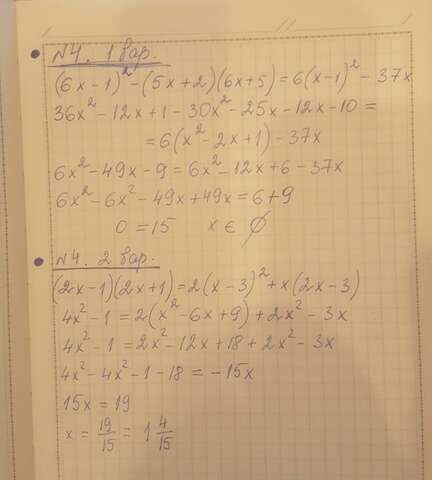 №4. 1 вар.
(6x-1)² - (5x+2)(6x+5) = 6(x-1)² - 37x
36x² - 12x + 1 - 30x² - 25x - 12x - 10 =
= 6(x² - 2x + 1) - 37x
6x² - 49x - 9 = 6x² - 12x + 6 - 37x
6x² - 6x² - 49x + 49x = 6 + 9
0 = 15 x ∈ ∅
№4. 2 вар.
(2x-1)(2x+1) = 2(x-3)² + x(2x-3)
4x² - 1 = 2(x² - 6x + 9) + 2x² - 3x
4x² - 1 = 2x² - 12x + 18 + 2x² - 3x
4x² - 4x² - 1 - 18 = -15x
15x = 19
x = 19/15 = 1 4/15